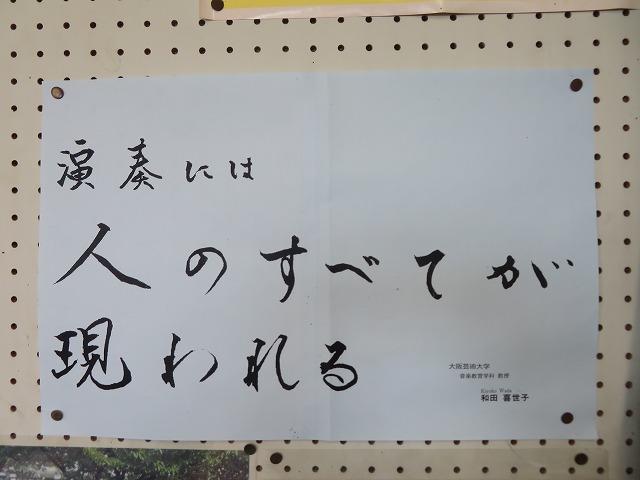 演奏には
人のすべてが
現われる
大阪芸術大学
音楽教育学科 教授
Kiyoko Wada
和田 喜世子